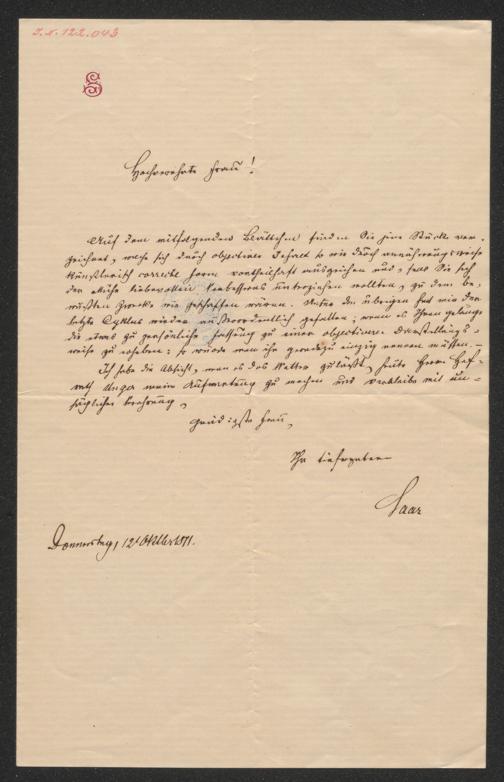 I.N. 122.043
S
Hochverehrte Frau!
Auf dem mitfolgenden Blättchen finden Sie jene Stücke ver-
zeichnet, welche sich durch objectiven Gehalt so wie durch annäherungsweise
künstlerisch correcte Form vortheilhaft auszeichnen und, falls Sie sich
der Mühe liebevollen unterziehen wollten, zu dem be-
wußten Zwecke wie geschaffen wären. Unter den übrigen hat mir der
letzte Cyklus wieder außerordentlich gefallen; wenn es Ihnen gelänge
die etwas zu persönliche Fassung zu einer objectiven Darstellungs-
weise zu erheben: so würde man ihn geradezu einzig nennen müssen. –
Ich habe die Absicht, wenn es das Wetter zuläßt, heute Herrn Hof-
rath Unger meine Aufwartung zu machen und verbleibe mit un-
säglicher Verehrung,
gnädigste Frau,
Ihr tiefergebener
Saar
Donnerstag, 12t Oktober 1871.